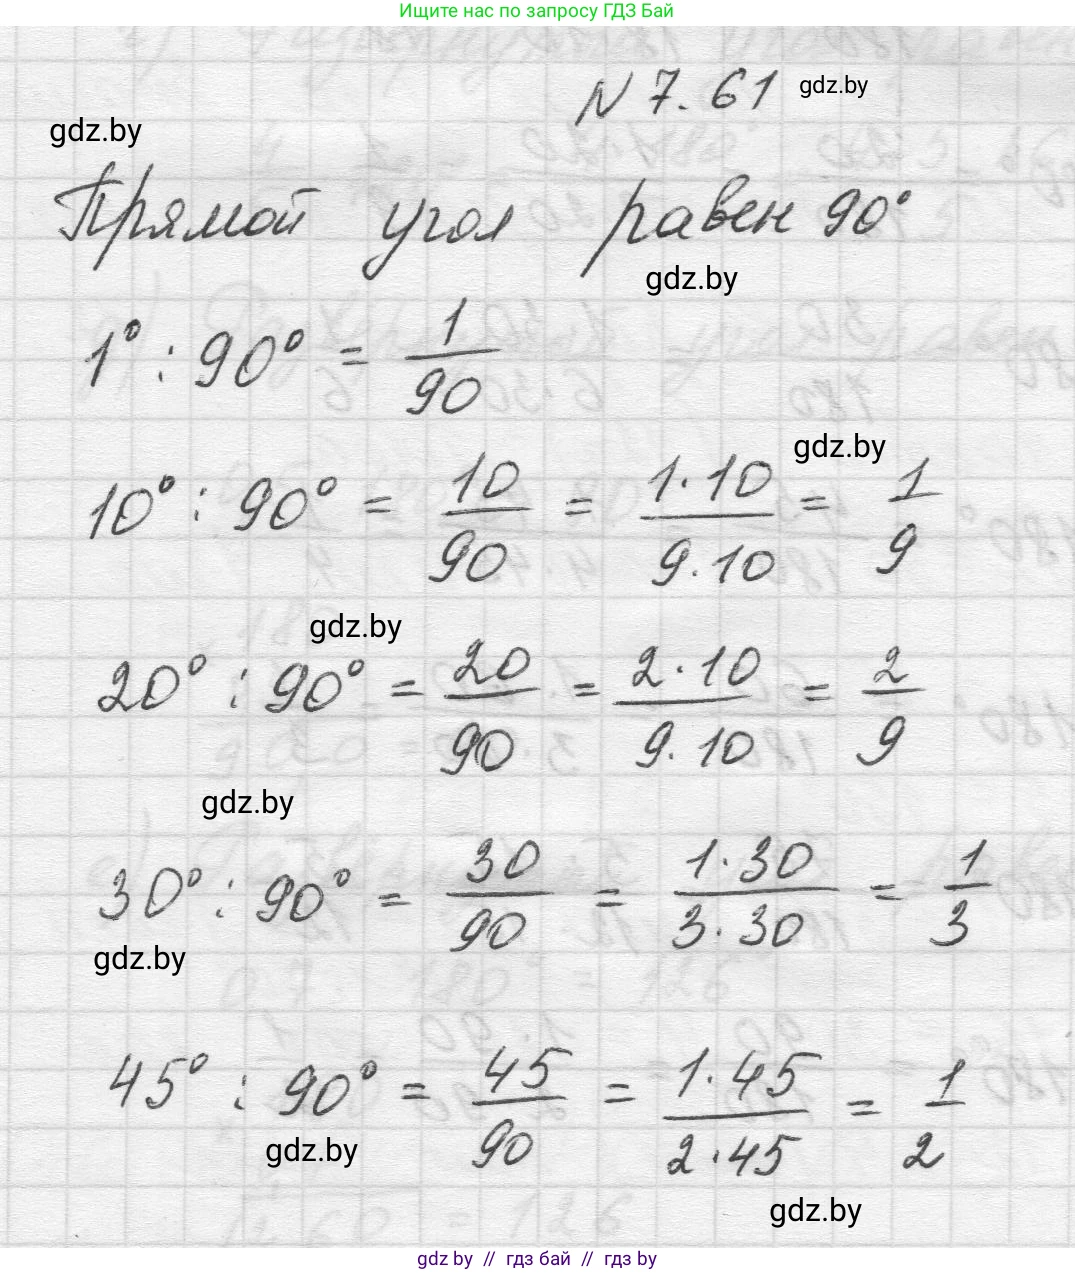 Ищите нас по запросу ГДЗ Бай
N 7.61 gdz.by
gdz.by
Прямой угол равен 90°
gdz.by
1° : 90° = 1/90
gdz.by
10° : 90° = 10/90 = 1·10/9·10 = 1/9
gdz.by
20° : 90° = 20/90 = 2·10/9·10 = 2/9
gdz.by
30° : 90° = 30/90 = 1·30/3·30 = 1/3
gdz.by
45° : 90° = 45/90 = 1·45/2·45 = 1/2
gdz.by
gdz.by
gdz by // гдз бай // гдз by